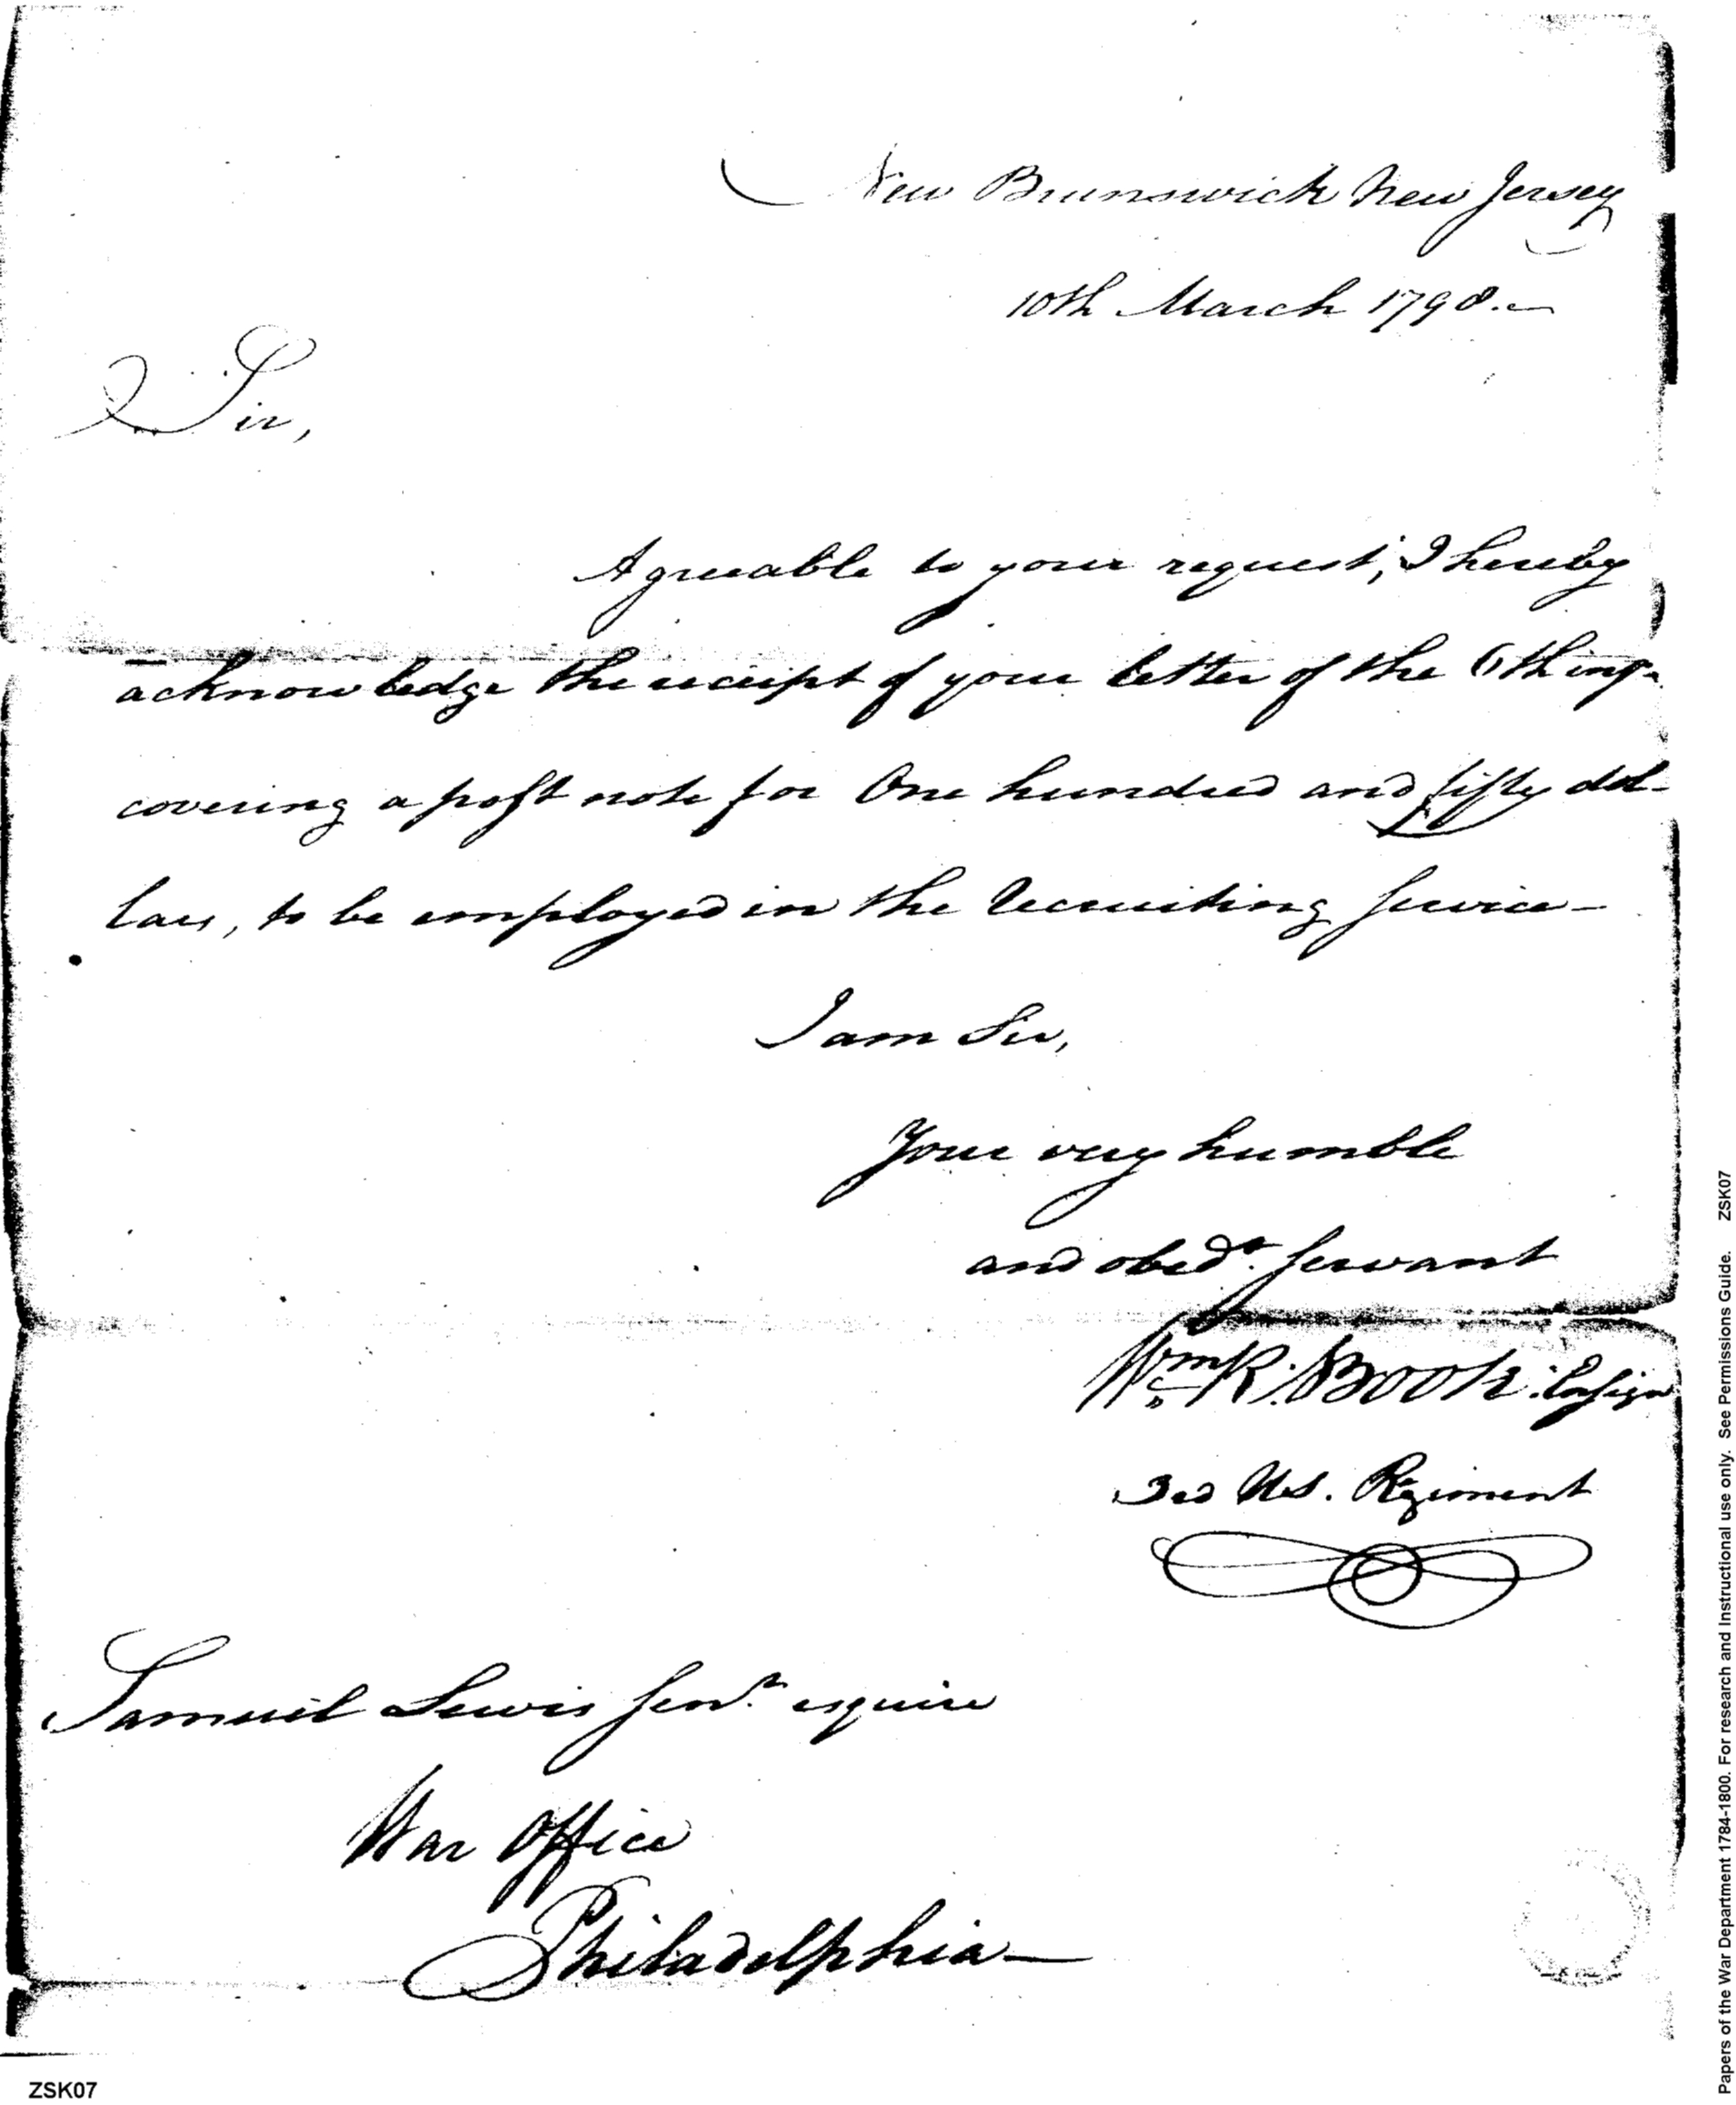 New Brunswick New Jersey
10th March 1798.
Sir,
Agreeable to your request, I hereby
acknowledge the receipt of your letter of the 6th
covering a post note for One hundred and fifty dol-
lars, to be employed in the recruiting Service-
I am Sir,
Your very humble
and obedt. Servant
Wm R. Book Ensign
3rd U.S. Regiment
Samuel Lewis Senr. esquire
War Office
Philadelphia
ZSK07
Papers of the War Department 1784-1800. For research and Instructional use only. See Permissions Guide. ZSK07